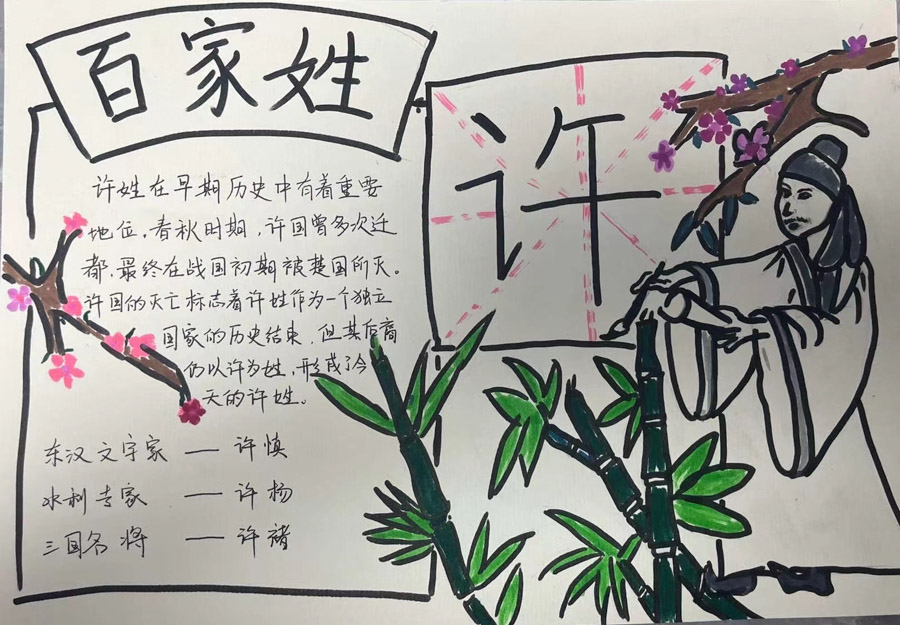 百家姓
许
许姓在早期历史中有着重要
地位，春秋时期，许国曾多次迁
都，最终在战国初期被楚国所灭。
许国的灭亡标志着许姓作为一个独立
国家的历史结束，但其后裔
仍以许为姓，形成了今
天的许姓。
东汉文字家 — 许慎
水利专家 — 许杨
三国名将 — 许褚